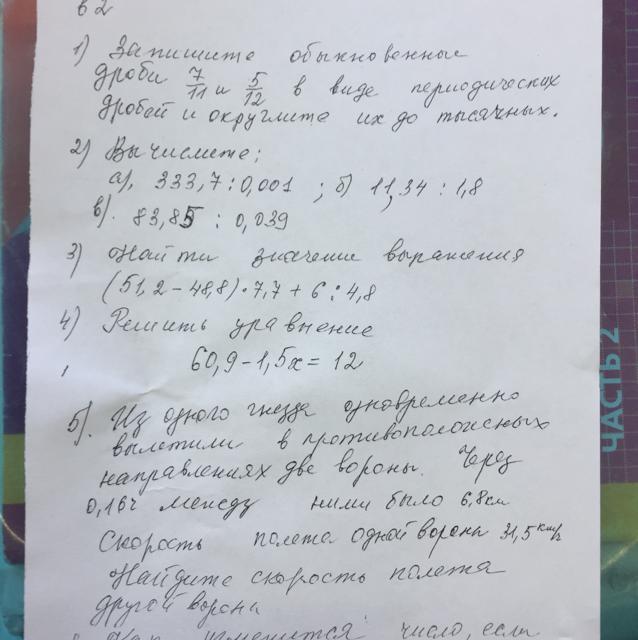 в 2
1) Запишите обыкновенные
дроби 7/11 и 5/12 в виде периодических
дробей и округлите их до тысячных.
2) Вычислите;
а). 333,7 : 0,001 ; б) 11,34 : 1,8
в). 83,85 : 0,039
3) Найти значение выражения
(51,2 - 48,8) · 7,7 + 6 : 4,8
4) Решить уравнение
60,9 - 1,5x = 12
5). Из одного гнезда одновременно
вылетили в противоположных
направлениях две вороны. Через
0,16ч между ними было 6,8км
Скорость полета одной вороны 31,5 км/ч
Найдите скорость полета
другой вороны
Как изменится число, если
ЧАСТЬ 2